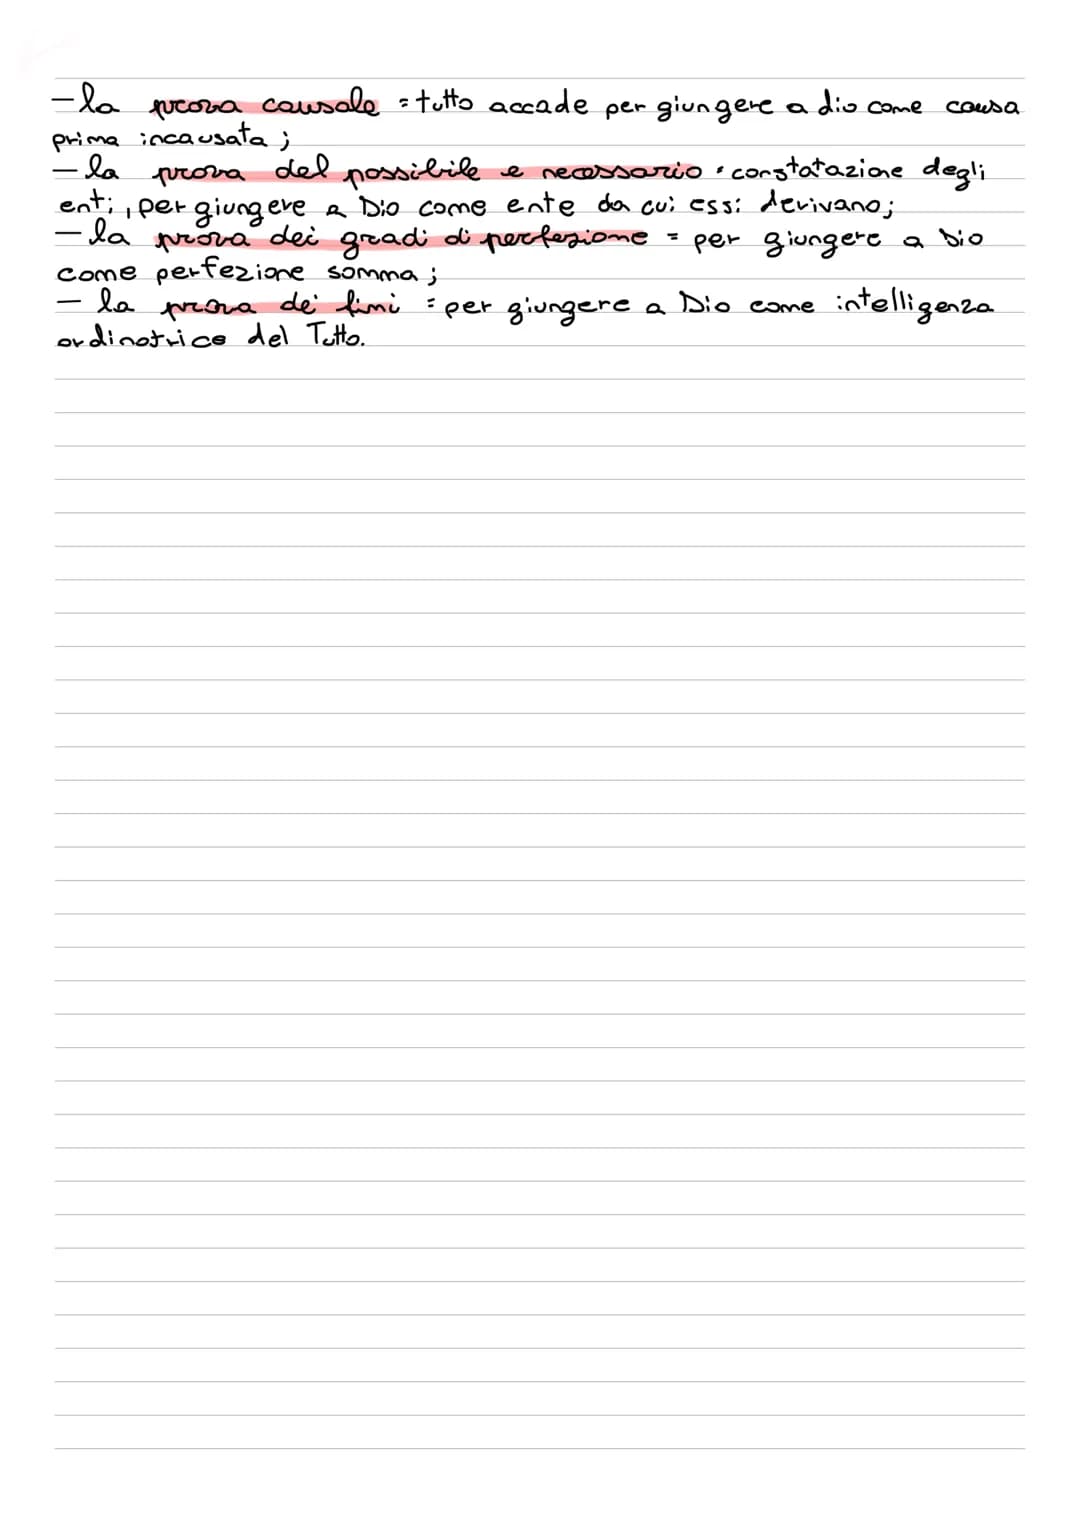 - la prova causale = tutto accade per giungere a dio come causa
prima incausata ;
- la prova del possibile e necessario = constatazione degli
enti, per giungere a Dio come ente da cui essi derivano;
- la prova dei gradi di perfezione = per giungere a Dio
come perfezione somma ;
- la prova dei fini = per giungere a Dio come intelligenza
ordinatrice del Tutto.